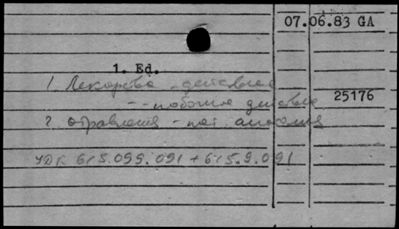 07.06.83 GA
1. Ed.
1. Лекарства - действие
-- побочное действие
25176
2. отравления - пат. анатомия
УДК 615.099.091 + 615.9.091